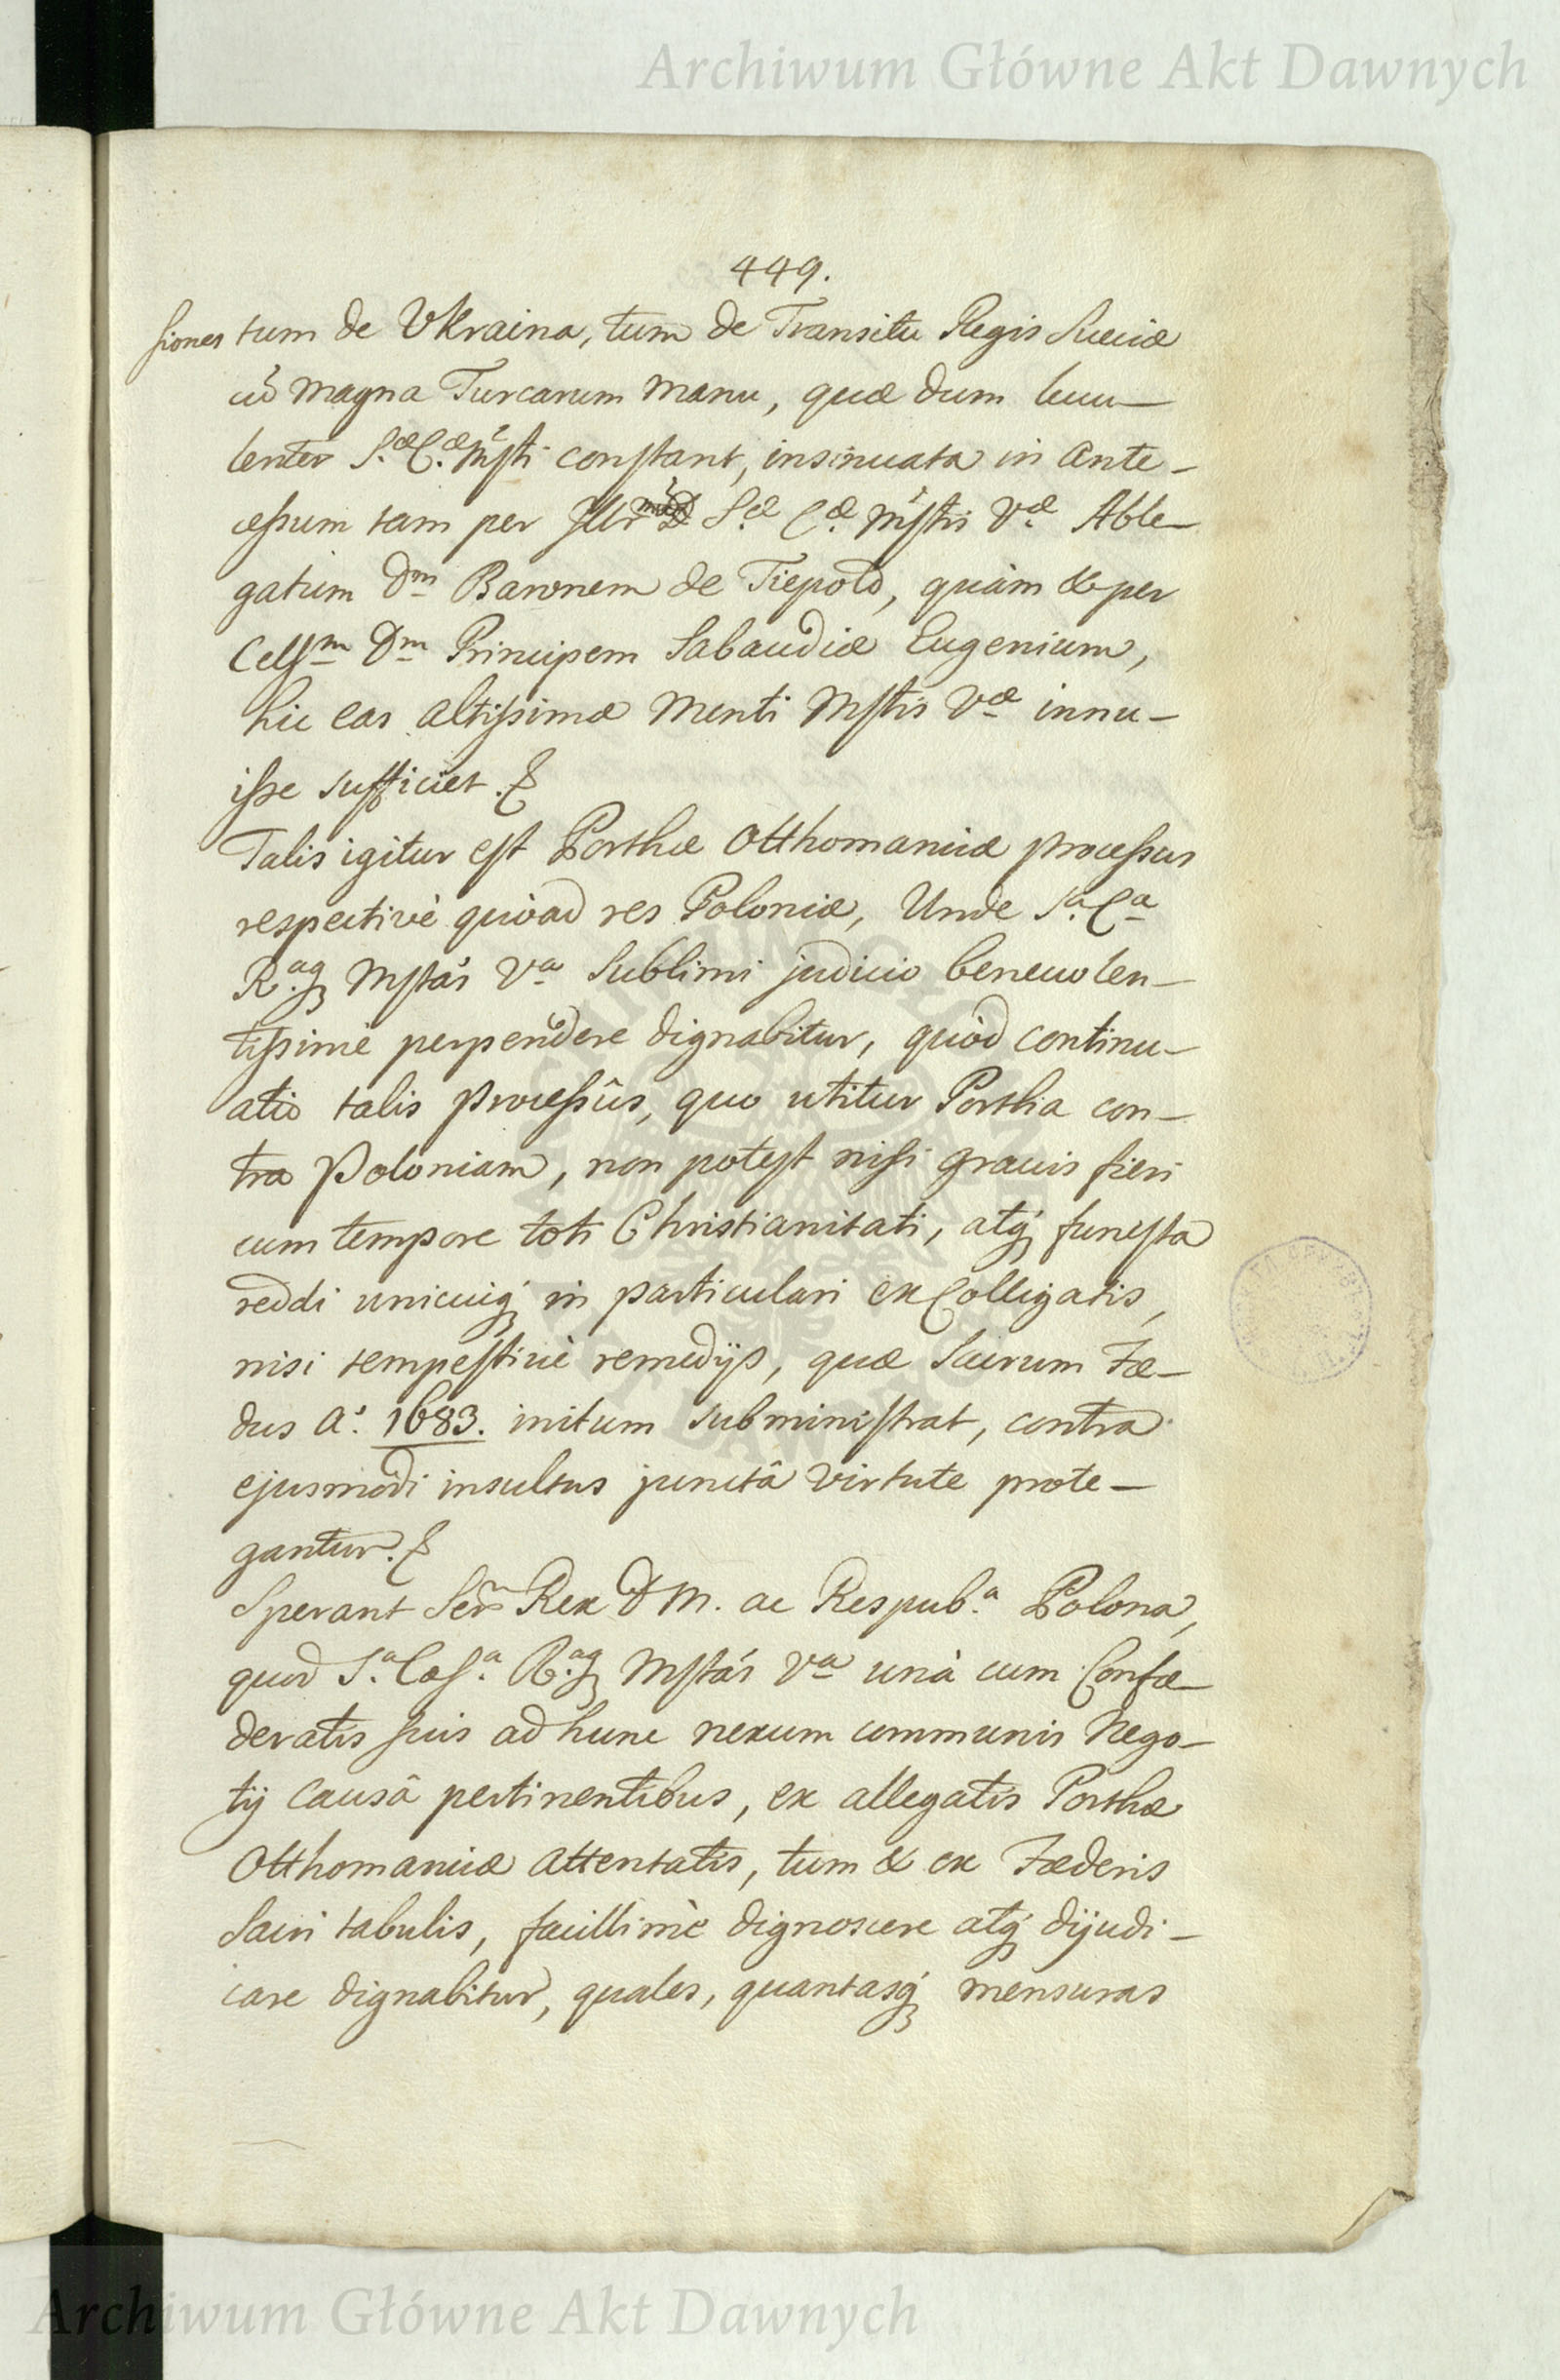 Archiwum Główne Akt Dawnych
449.
siones tum de Vkraina, tum de Transitu Regis Sueciæ
cũ magna Turcarum manu, quæ dum lucu-
lenter S.æ C.æ Mṡti constant, insinuata in ante-
cessum tam per Illr̃m S.æ C.æ Mṡtis V.æ Able-
gatum Dm Baronem de Tiepold, quàm & per
Celsm Dm Principem Sabaudiæ Eugenium,
hic eas altissimæ Menti Mstis Væ innu-
isse sufficiet.
Talis igitur est Porthæ Otthomanicæ processus
respectivè quòad res Poloniæ, Unde S.a C.a
R.aq́ Mstás V.a Sublimi judicio benevolen-
tissimè perpendere dignabitur, quòd continu-
atio talis processûs, quo utitur Portha con-
tra Poloniam, non potest nisi gravis fieri
cum tempore toti Christianitati, atq́ funesta
reddi unicuiq́ in particulari ex Colligatis,
nisi tempestivè remedijs, quæ Sacrum Fæ-
dus A.o 1683. initum subministrat, contra
ejusmodi insultus junctâ virtute prote-
gantur.
Sperant Ser̃ Rex D M. ac Respub.a Polona,
quod S.a Cæs.a R.aq́ Mstás V.a unà cum Confæ-
deratis suis ad hunc nexum communis Nego-
tij causâ pertinentibus, ex allegatis Porthæ
Otthomanicæ attentatis, tum & ex Fæderis
Sacri tabulis, facillimè dignoscere atq́ dijudi-
care dignabitur, quales, quantasq́ mensuras
Archiwum Główne Akt Dawnych